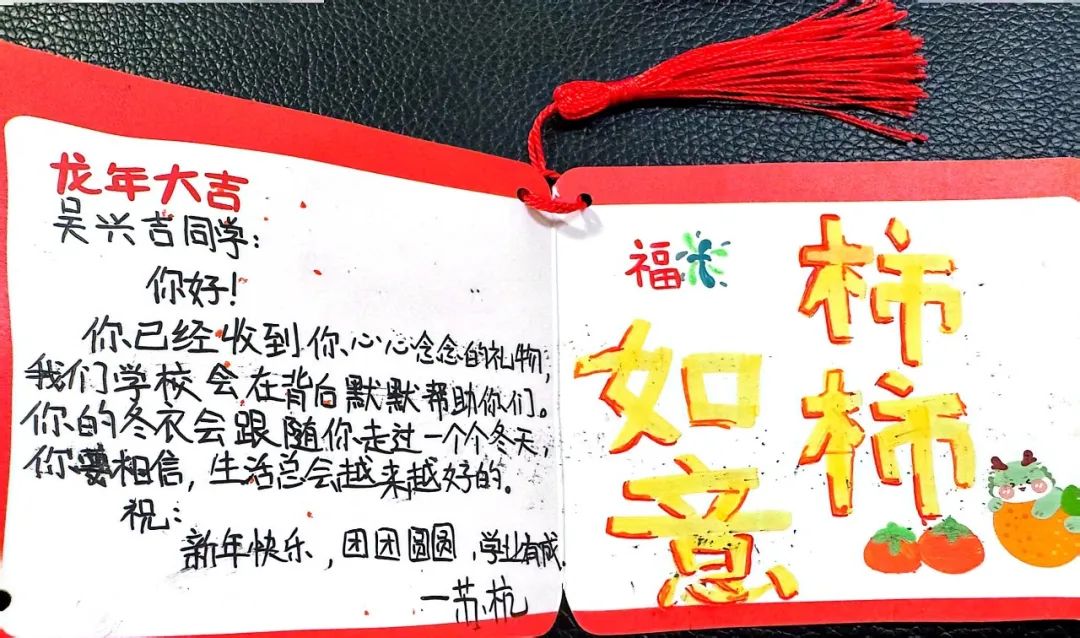 龙年大吉
吴兴吉同学:
你好!
你已经收到你心心念念的礼物,
我们学校会在背后默默帮助你们。
你的冬衣会跟随你走过一个个冬天,
你要相信,生活总会越来越好的。
祝:
新年快乐,团团圆圆,学业有成.
一苏杭
福
柿柿
如意